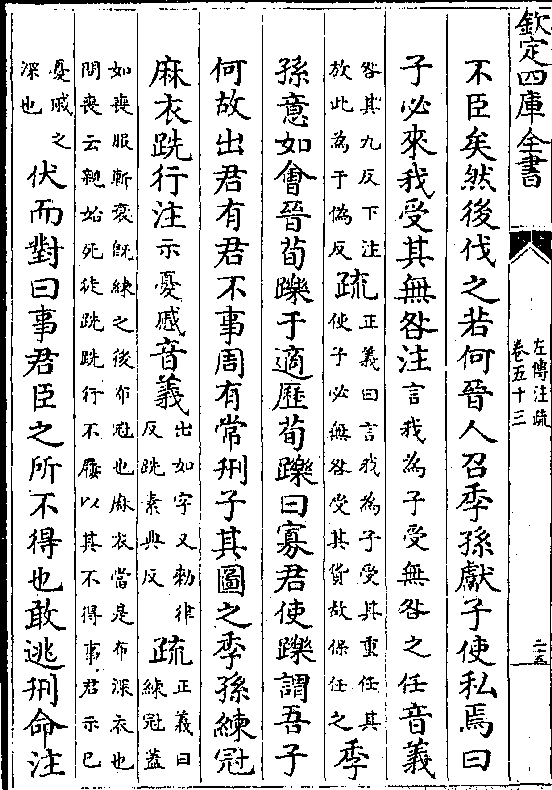 欽定四庫全書
左傳注疏
卷五十三
二五
不臣矣然後伐之若何晉人召季孫獻子使私焉曰
子必來我受其無咎注言我為子受無咎之任音義
咎其九反下注
放此為于偽反
疏
正義曰言我為子受其重任其
使子必無咎受其貨故保任之
季
孫意如會晉荀躒于適歷荀躒曰寡君使躒謂吾子
何故出君有君不事周有常刑子其圖之季孫練冠
麻衣跣行注示憂慼音義
出如字又勑律
反跣素典反
疏
正義曰
練冠蓋
如喪服斬衰既練之後布冠也麻衣當是布深衣也
問喪云親始死徒跣跣行不屨以其不得事君示已
憂戚之
深也
伏而對曰事君臣之所不得也敢逃刑命注